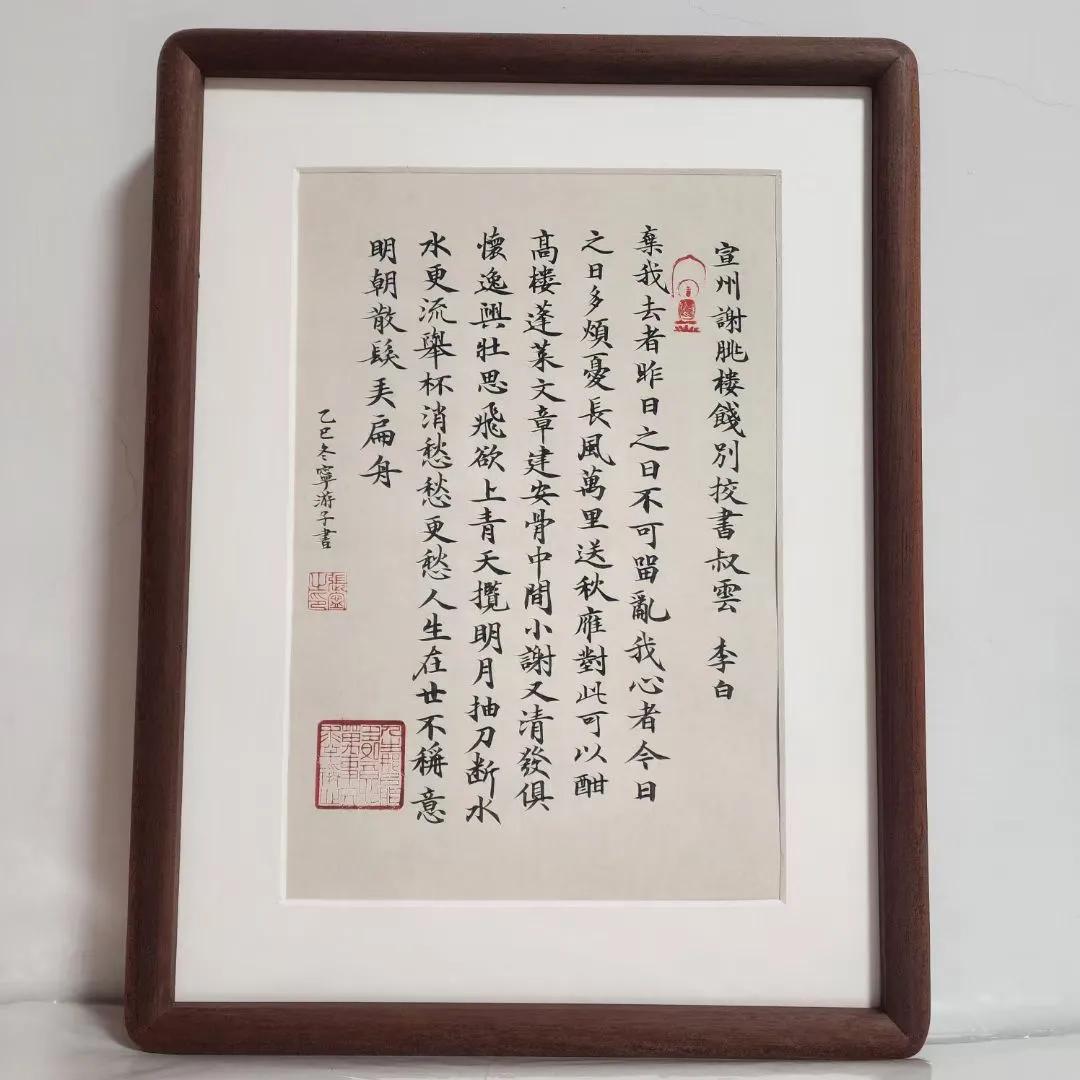 宣州謝朓楼餞別挍書叔雲 李白
棄我去者昨日之日不可留亂我心者今日
之日多煩憂長風萬里送秋雁對此可以酣
高楼蓬萊文章建安骨中間小謝又清發俱
懷逸興壯思飛欲上青天攬明月抽刀断水
水更流舉杯消愁愁更愁人生在世不稱意
明朝散髮弄扁舟
乙巳冬寧游子書